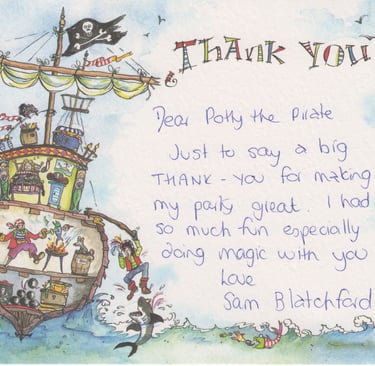 THANK YOU
Dear Potty the Pirate
Just to say a big
THANK-YOU for making
my party great. I had
so much fun especially
doing magic with you
Love
Sam Blatchford